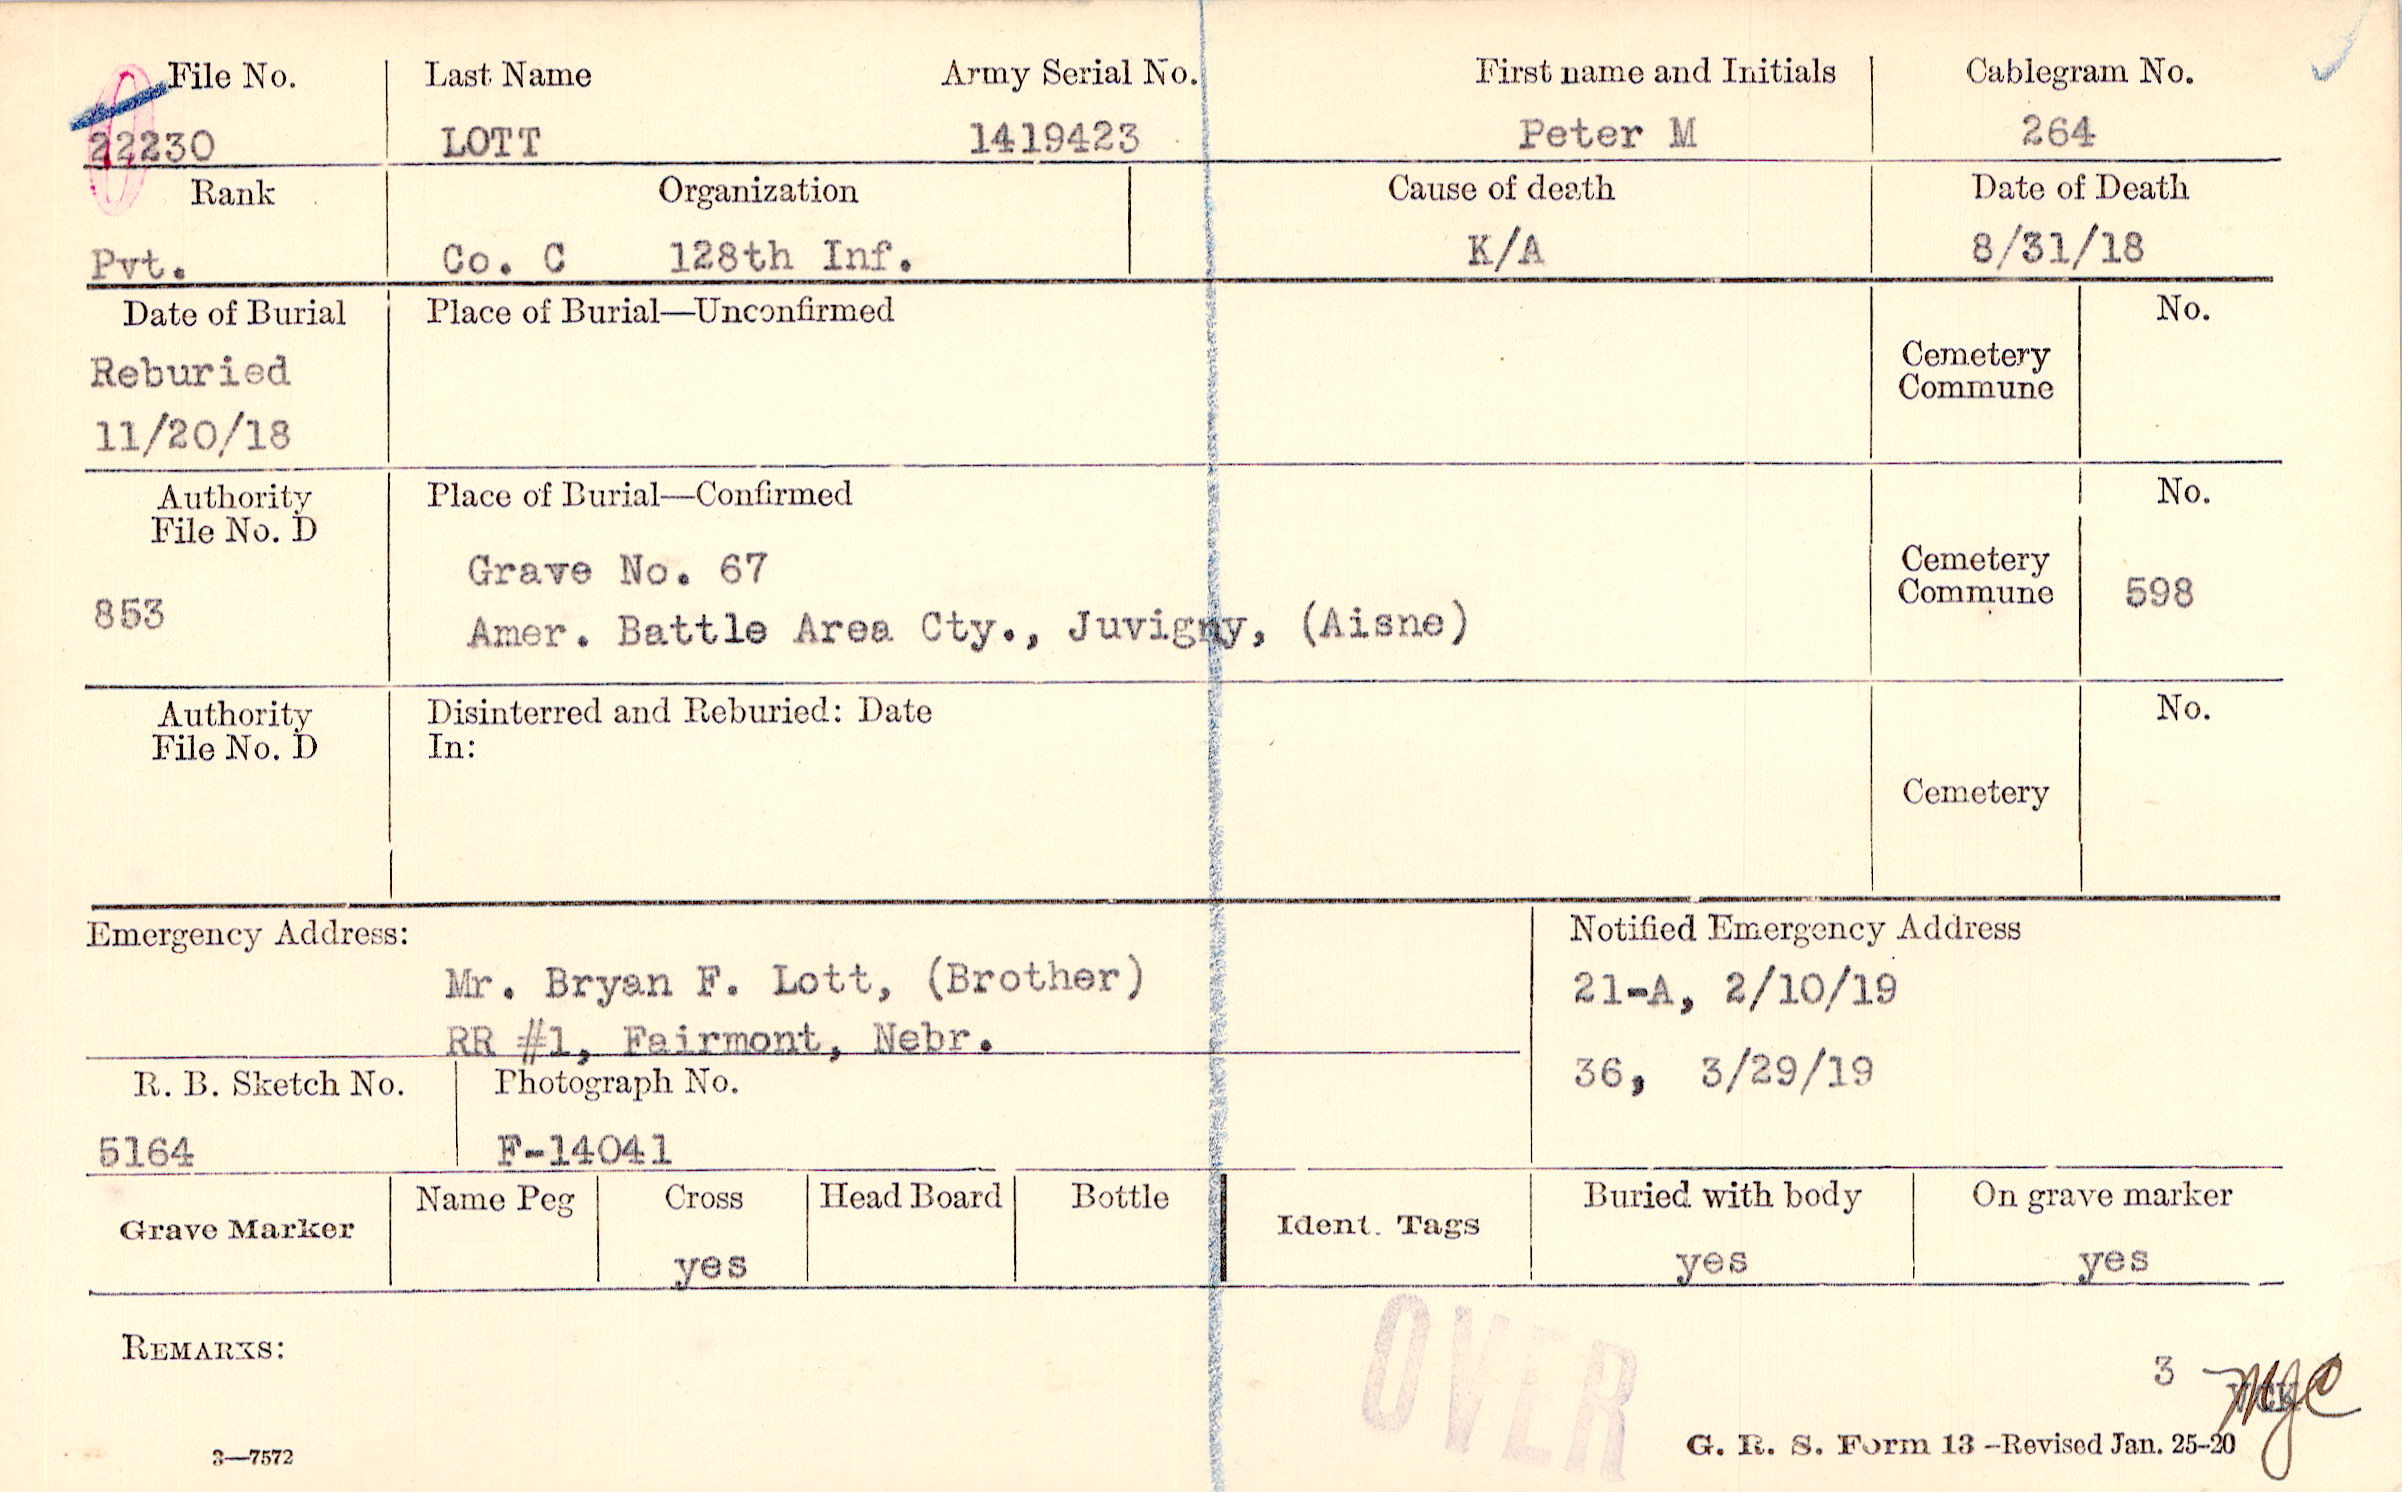 File No. Last Name Army Serial No. First name and Initials Cablegram No.
22230 LOTT 1419423 Peter M 264
Rank Organization Cause of death Date of Death
Pvt. Co. C 128th Inf. K/A 8/31/18
Date of Burial Place of Burial—Unconfirmed No.
Reburied Cemetery
Commune
11/20/18
Authority Place of Burial—Confirmed No.
File No. D
Grave No. 67 Cemetery
853 Commune 598
Amer. Battle Area Cty., Juvigny, (Aisne)
Authority Disinterred and Reburied: Date No.
File No. D In:
Cemetery
Emergency Address: Notified Emergency Address
Mr. Bryan F. Lott, (Brother) 21-A, 2/10/19
RR #1, Fairmont, Nebr.
R. B. Sketch No. Photograph No. 36, 3/29/19
5164 F-14041
Name Peg Cross Head Board Bottle Buried with body On grave marker
Grave Marker Ident. Tags
yes yes yes
OVER
REMARKS:
3
3—7572 G. R. S. Form 13 -Revised Jan. 25-20